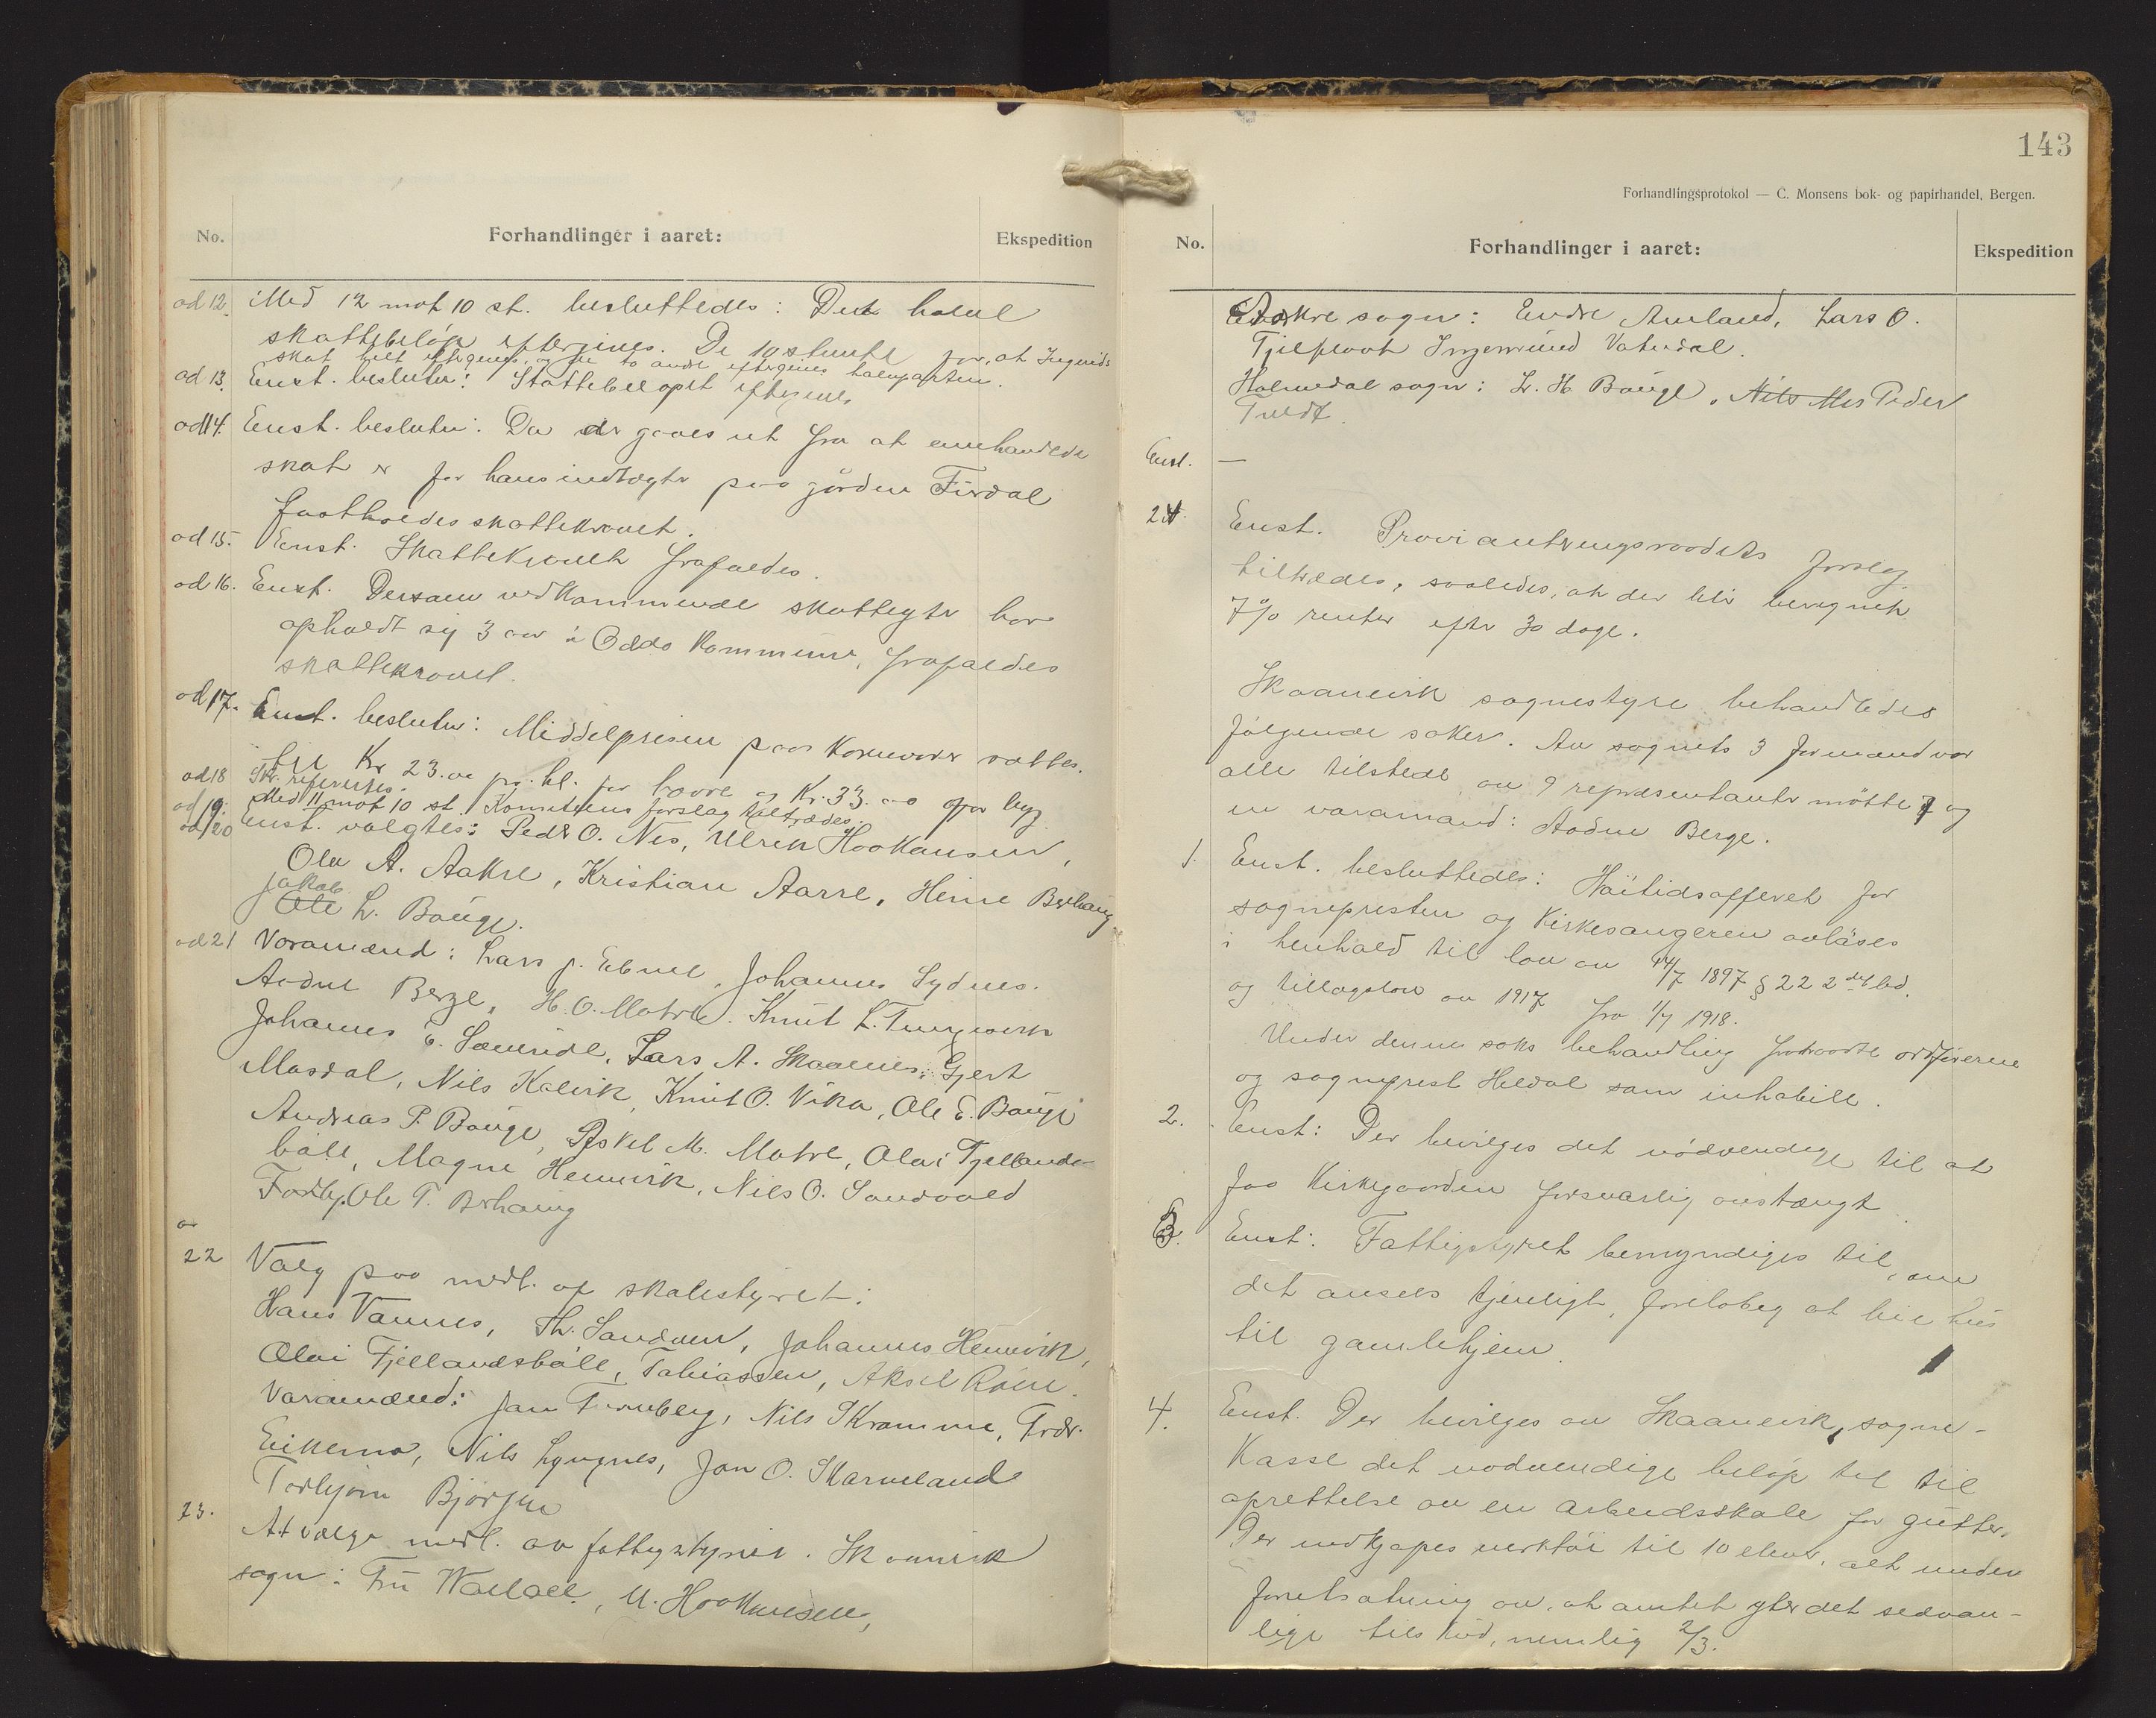 No. Forhandlinger i aaret: Ekspedition
ad 12. Med 12 mot 10 st. besluttedes: Det halve
skattebeløp eftergives. De 10 stemte for, at Ingrids
skat helt eftergives, og de to andre eftergives halvparten.
ad 13. Enst. beslutn: Skattebeløpet eftergives
ad 14. Enst. beslutn: Da der gaaes ut fra at omhandlede
skat er for hans indtægter paa gården Fürdal
fastholdes skattekravet.
ad 15. Enst. Skattekravet frafaldes.
ad 16. Enst. Dersom vedkommende skatteyter har
opholdt sig 3 aar i Odda kommune, frafaldes
skattekravet.
ad 17. Enst. beslutn: Middelprisen paa kornvarer sættes
til Kr 23.00 pr. hl. for havre og Kr. 33.00 for byg
ad 18 Skr. refereres.
ad 19. Med 11 mot 10 st. Komiteens forslag tiltrædes.
ad 20 enst. valgtes: Peder O. Nes, Ulrik Haakansen,
Ola A. Aakre, Kristian Aarre, Heine Berhaug
Jakob
Ole L. Bauge.
ad 21 Varamænd: Lars J. Ebne, Johannes Sydnes.
Aadne Berge, H. O. Matre. Knut L. Tungesvik
Johannes E. Sævride, Lars A. Skaanes, Gjert
Masdal, Nils Kalvik, Knut O. Vika, Ole E. Bauge
Andreas P. Bauge, Askel M. Matre, Olai Fjellands-
bøle, Magne Hemvik, Nils O. Sandvold
Torbj. Ole T. Berhaug
22 Valg paa medl. af skolestyret:
Hans Vannes, Th. Sandven, Johannes Hemvik,
Olai Fjellandsbøle, Tobiassen, Aksel Røen.
Varamænd: Jan Turnberg, Nils Skramme, Fredr.
Eikemo, Nils Lyngnes, Jon O. Skarveland
Torbjørn Bjørgen
23. At vælge medl. av fattigstyret. Skaanevik
sogn: Fru Wallace, U. Haakansen,
143
Forhandlingsprotokol — C. Monsens bok- og papirhandel, Bergen.
No. Forhandlinger i aaret: Ekspedition
Aakre sogn: Endre Amland, Lars O.
Fjelflaat Ingemund Vatndal.
Holmedal sogn: L. H. Bauge, Nils Mes Peder
Tvedt.
Enst. —
24 Enst. Provianteringsraadets forslag
tiltrædes, saaledes, at der blir beregnet
7% renter efter 30 dage.
Skaanevik sognestyre behandledes
følgende saker. Av sognets 3 formænd var
alle tilstede av 9 repræsentanter møtte 7 og
en varamand: Aadne Berge.
1. Enst. besluttedes: Høitidsofferet for
sognepresten og kirkesangeren avløses
i henhold til lov av 14/7 1897 § 22 2det led.
og tillægslov av 1917 fra 1/7 1918.
Under denne saks behandling fratraadte ordføreren
og sogneprest Heldal som inhabile.
2. Enst: Der bevilges det nødvendige til at
faa kirkegaarden forsvarlig avstængt.
3. Enst: Fattigstyret bemyndiges til, om
det ansees tjenligt, foreløbig at leie hus
til gamlehjem.
4. Enst. Der bevilges av Skaanevik sogne-
kasse det nødvendige beløp til til
oprettelse av en arbeidsskole for gutter.
Der indkjøpes verktøi til 10 elever, alt under
foretsætning av, at amtet yter det sedvan-
lige tilskud, nemlig 2/3.